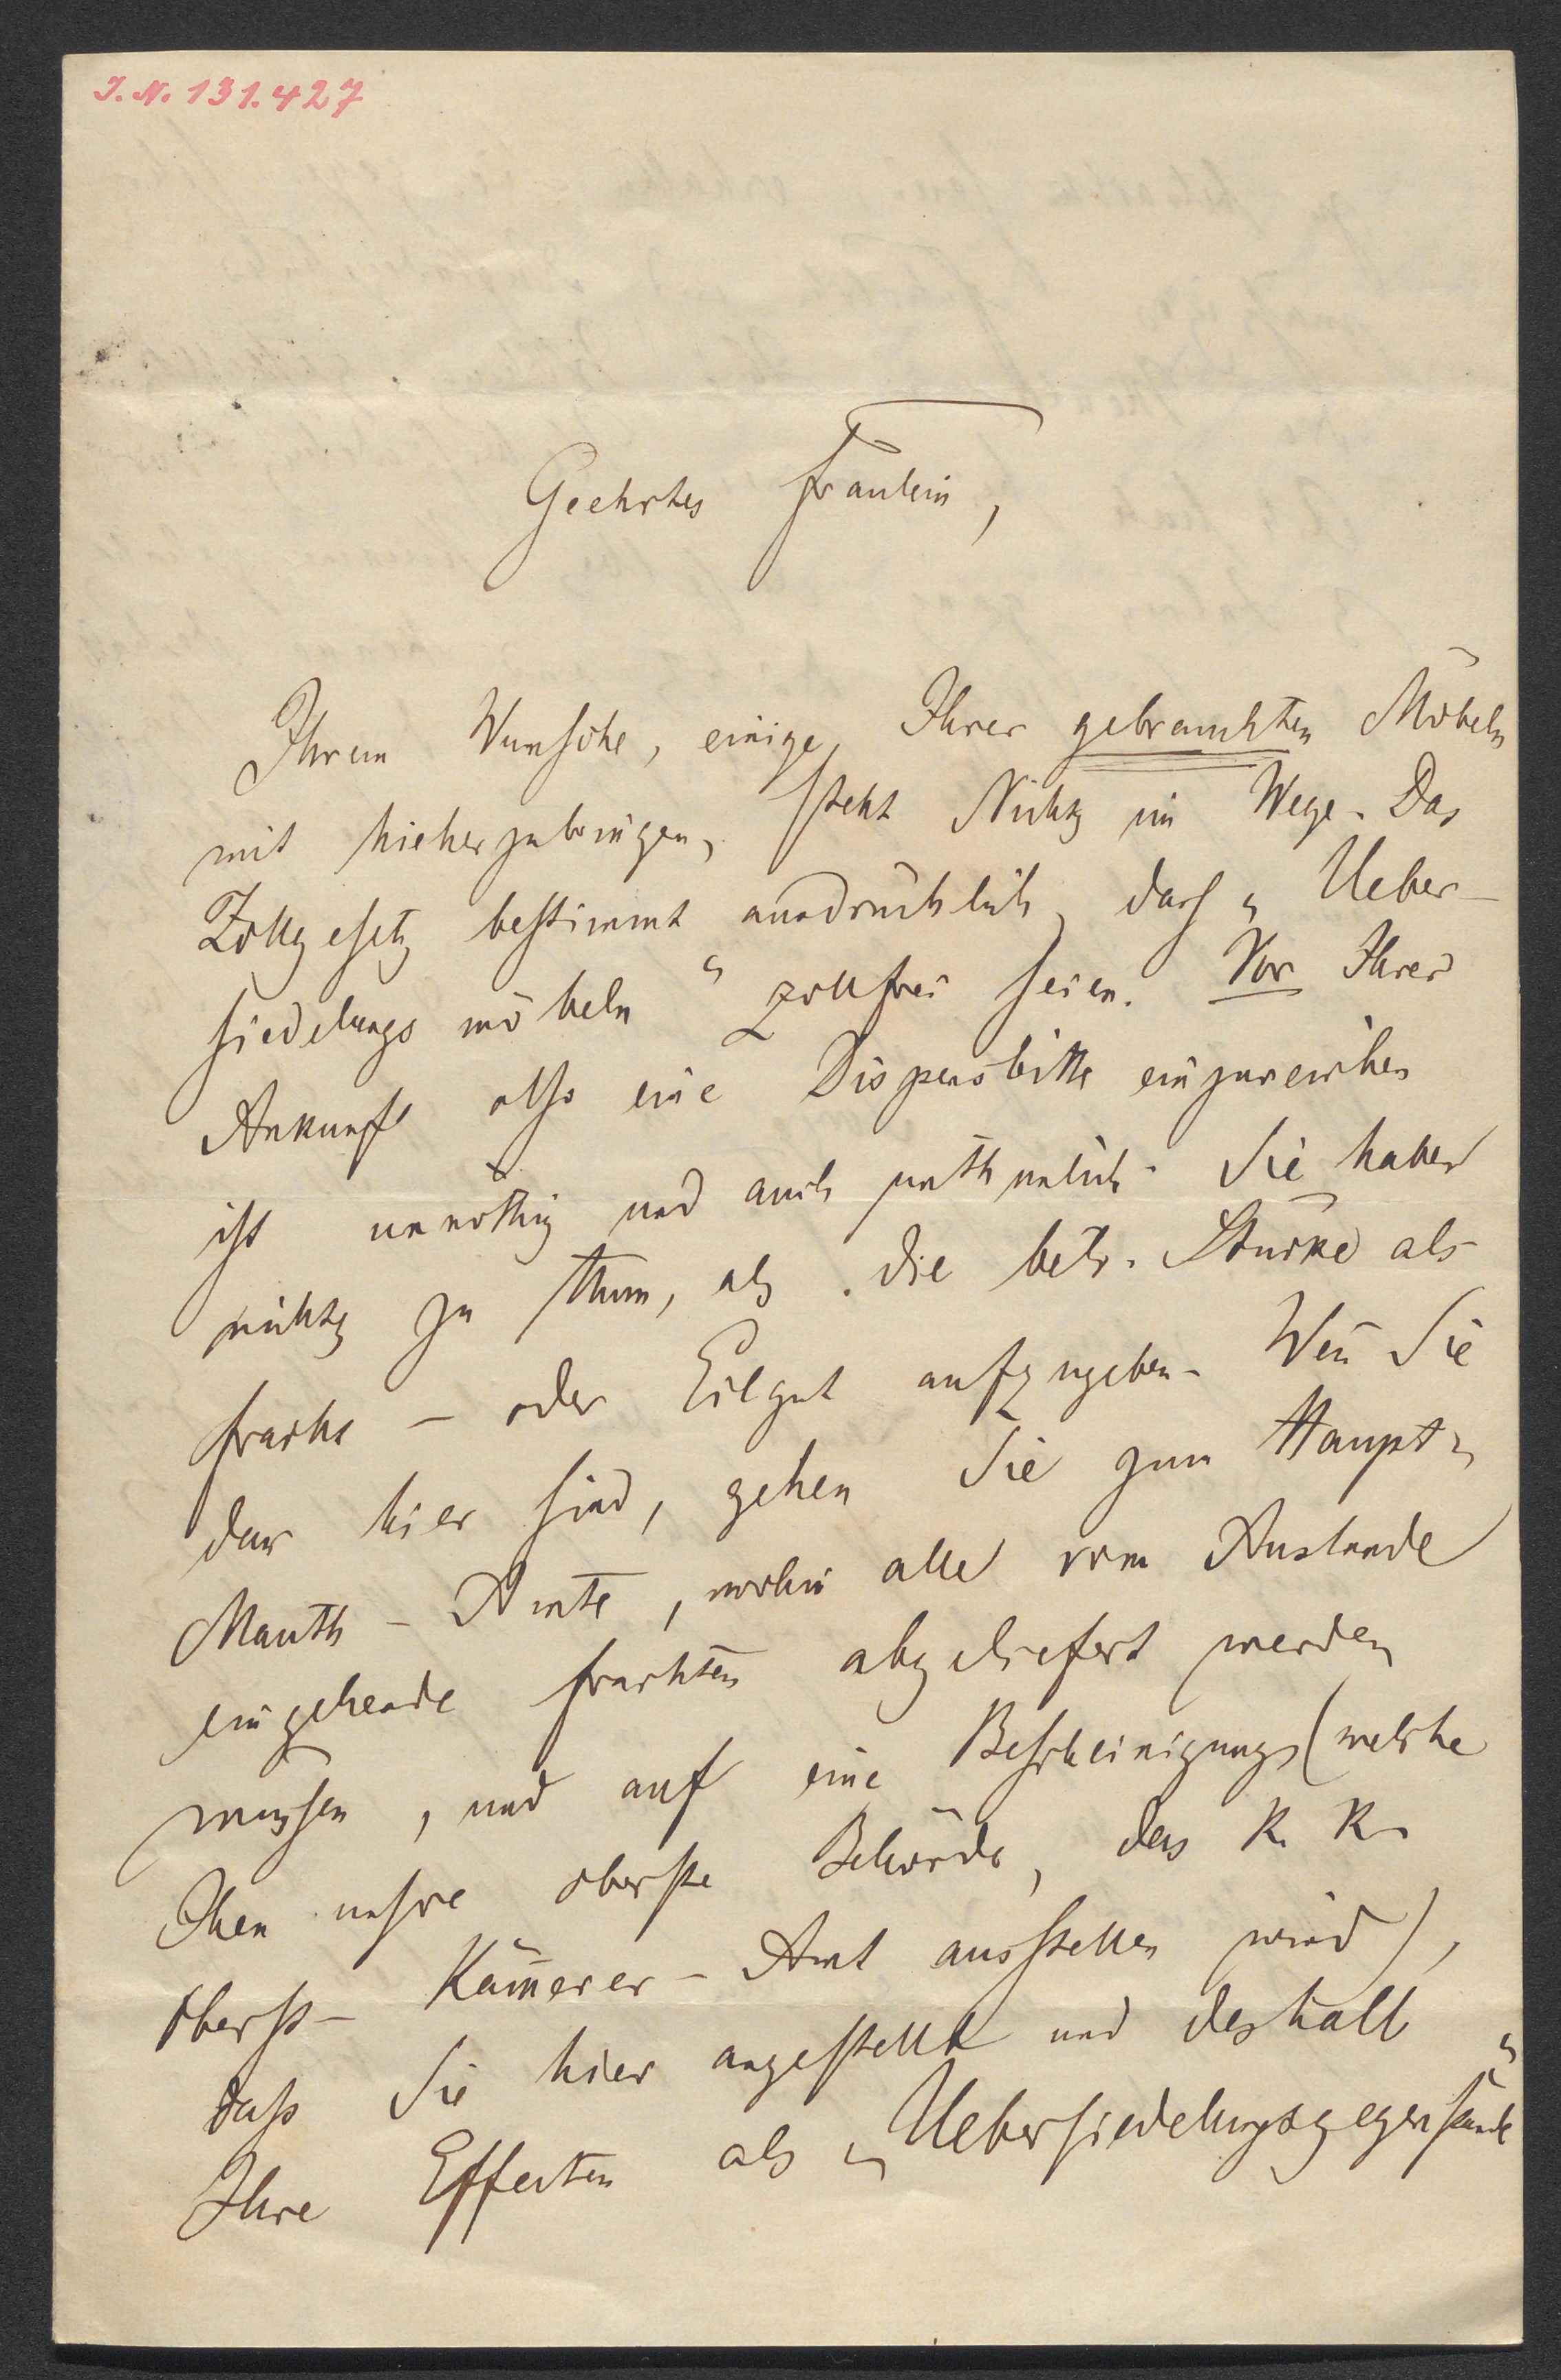 I. N. 131.427
Geehrtes Fräulein,
Ihrem Wunsche, einige Ihrer gebrauchten Möbeln
mit hieherzubringen, steht Nichts im Wege. Das
Zollgesetz bestimmt ausdrücklich, dass „Ueber-
siedelungsmöbeln“ zollfrei seien. Vor Ihrer
Ankunft also eine Dispensbitte einzureichen
ist unnöthig und auch unthunlich. Sie haben
nichts zu thun, als die betr. Stücke als
Fracht- oder Eilgut aufzugeben. Wen̄ Sie
dan̄ hier sind, gehen Sie zum Haupt-
Mauth-Amte, wohin alle vom Auslande
eingehende Frachten abgeliefert werden
müssen, und auf eine Bescheinigung (welche
Ihnen unsre oberste Behörde, das K. K.
Oberst-Käm̄erer-Amt ausstellen wird),
dass Sie hier angestellt und deshalb
Ihre Effecten als „Uebersiedelungsgegenstände“